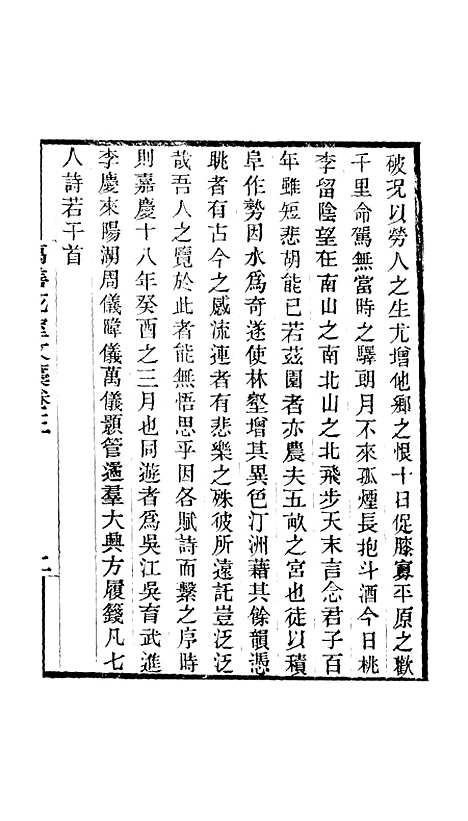 破況以勞人之生尤增他鄉之恨十日促膝寡平原之歡
千里命駕無當時之驛朝月不來孤煙長抱斗酒今日桃
李留陰望在南山之南北山之北飛步天末言念君子百
年雖短悲胡能已若茲園者亦農夫五畝之宮也徒以積
阜作勢因水爲奇遂使林壑增其異色汀洲藉其餘韻憑
眺者有古今之感流連者有悲樂之殊彼所遠託豈泛泛
哉吾人之覽於此者能無悟思乎因各賦詩而繫之序時
則嘉慶十八年癸酉之三月也同遊者爲吳江吳育武進
李慶來陽湖周儀暐儀萬儀顥管遹羣大興方履籛凡七
人詩若干首
萬善花室文藁卷三
二